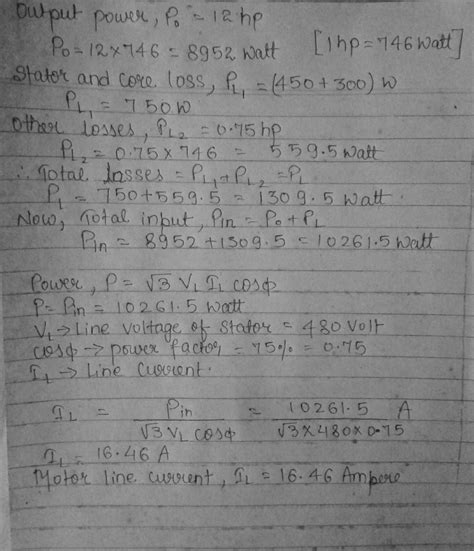 Output power, Po = 12 hp
Po = 12 × 746 = 8952 watt [1hp = 746 watt]
Stator and core loss, PL1 = (450 + 300) W
PL1 = 750 W
Other losses, PL2 = 0.75 hp
PL2 = 0.75 × 746 = 559.5 watt
∴ Total losses = PL1 + PL2 = PL
PL = 750 + 559.5 = 1309.5 watt.
Now, Total input, Pin = Po + PL
Pin = 8952 + 1309.5 = 10261.5 watt
Power, P = √3 VL IL cosϕ
P = Pin = 10261.5 watt
VL → Line voltage of stator = 480 Volt
cosϕ → power factor = 75% = 0.75
IL → Line Current.
IL = Pin / √3 VL cosϕ = 10261.5 / √3 × 480 × 0.75 A
IL = 16.46 A
Motor line current, IL = 16.46 Ampere